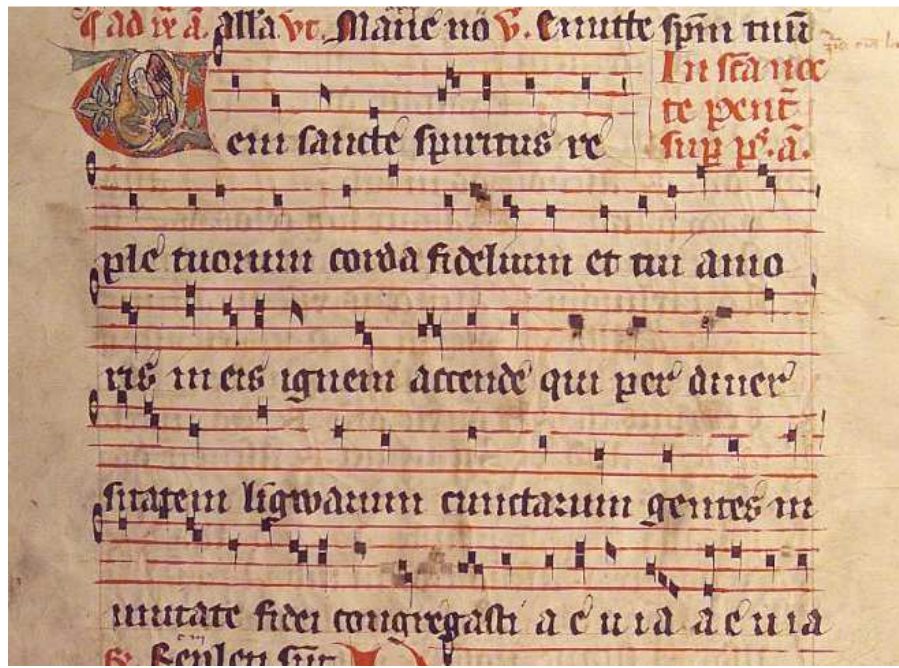 ¶ ad ix a. all'a vt. Mane no v. Emitte spm tuu
In sca noc
te pent
sup ps. a.
Veni sancte spiritus re
ple tuorum corda fidelium et tui amo
ris in eis ignem accende qui per diuer
sitatem ligwarum cunctarum gentes in
unitate fidei congregasti a e u ia a e u ia